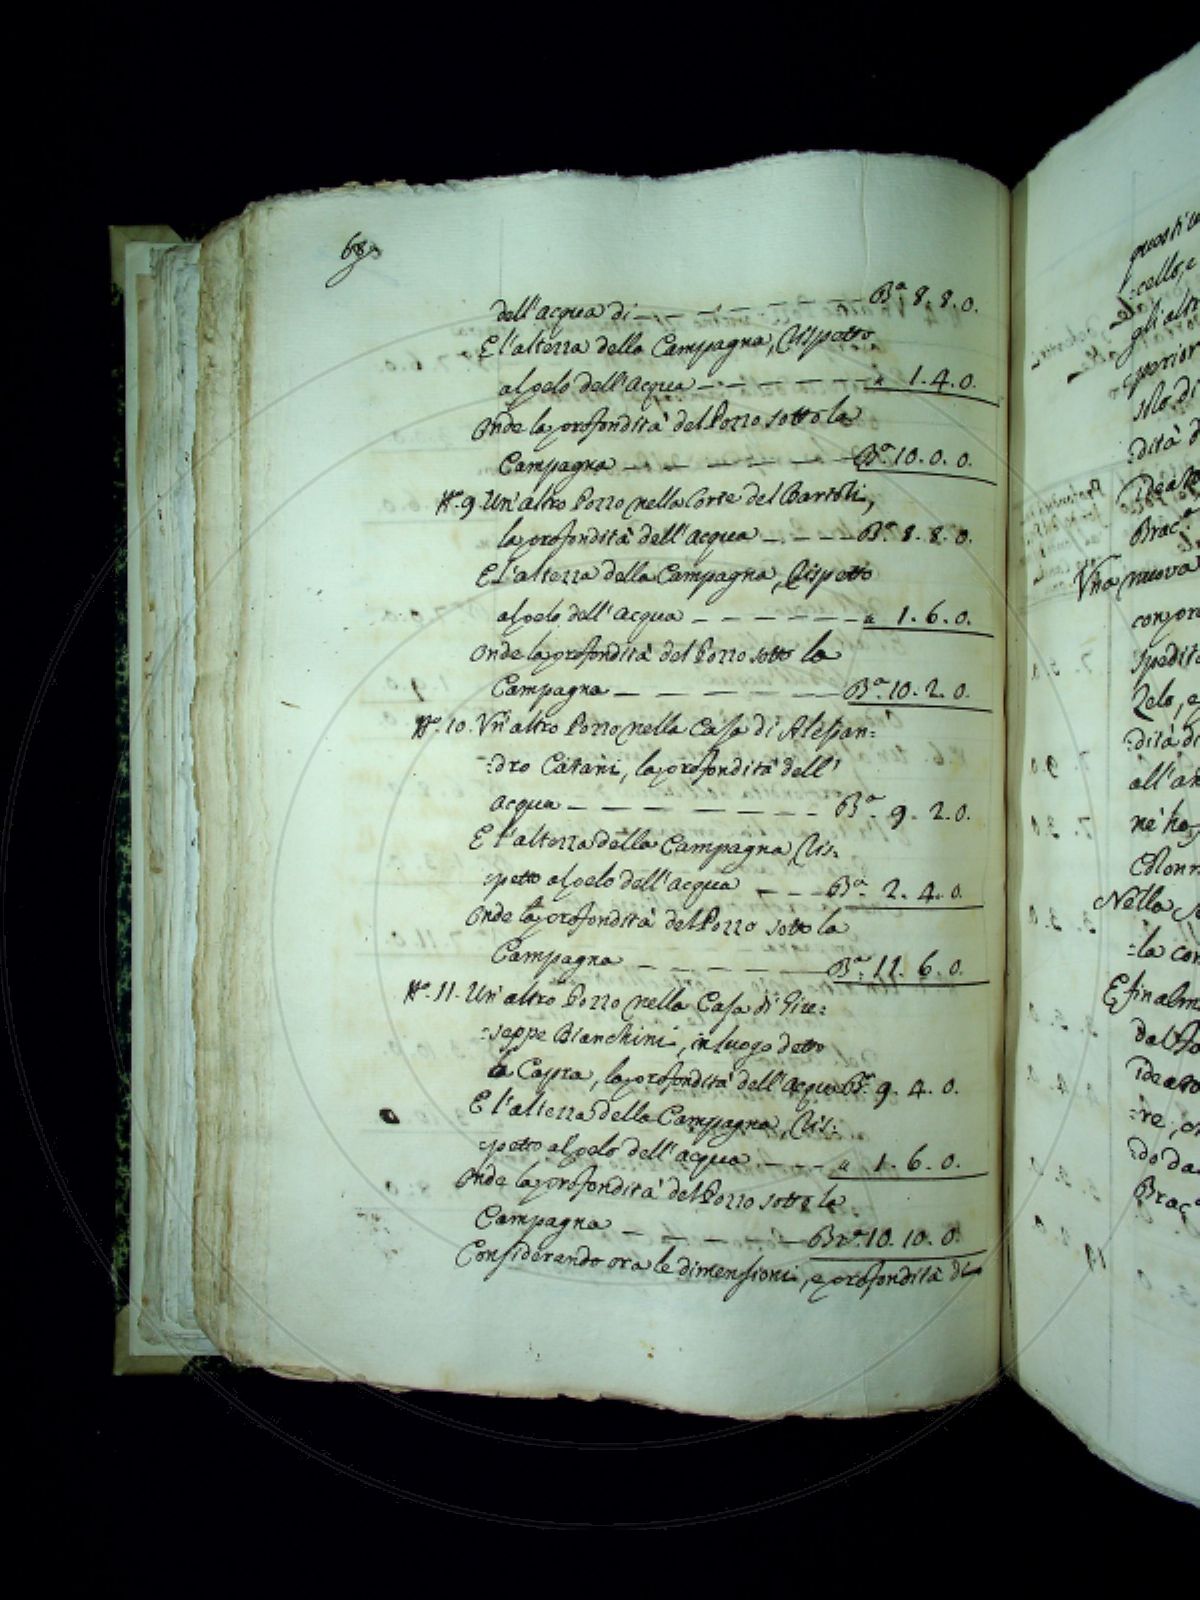 68
dell'acqua di — — — — — — Bª 8. 8. 0.
E l'altezza della Campagna, Rispetto
al pelo dell'acqua — — — — — — " 1. 4. 0.
Onde la profondità del Pozzo sotto la
Campagna — — — — — — Bª. 10. 0. 0.
Nº. 9. Un'altro Pozzo nella Corte del Bartoli,
la profondità dell'Acqua — — — — Bª. 8. 8. 0.
E L'altezza della Campagna, Rispetto
al pelo dell'Acqua — — — — — — " 1. 6. 0.
Onde la profondità del Pozzo sotto la
Campagna — — — — — — Bª. 10. 2. 0.
Nº. 10. Un'altro Pozzo nella Casa di Alessan=
=dro Catani, la profondità dell'
acqua — — — — — — — Bª. 9. 2. 0.
E l'altezza della Campagna Ris=
=petto al pelo dell'acqua — — — Bª. 2. 4. 0.
Onde la profondità del Pozzo sotto la
Campagna — — — — — — Bª. 11. 6. 0.
Nº. 11. Un'altro Pozzo nella Casa di Giu=
=seppe Bianchini, in luogo detto
la Capra, la profondità dell'Acqua Bª. 9. 4. 0.
E l'altezza della Campagna, Ris=
=petto al pelo dell'acqua — — — " 1. 6. 0.
Onde la profondità del Pozzo sotto la
Campagna — — — — — — Brª. 10. 10. 0.
Considerando ora le dimensioni, e profondità di
gli altri
dità d
Brac.ª
Una nuova
spedita
Zelo, e
=dità di
nè ho
Colonn
Nella
=la con
E finalm
=re, o
=do da
Brac